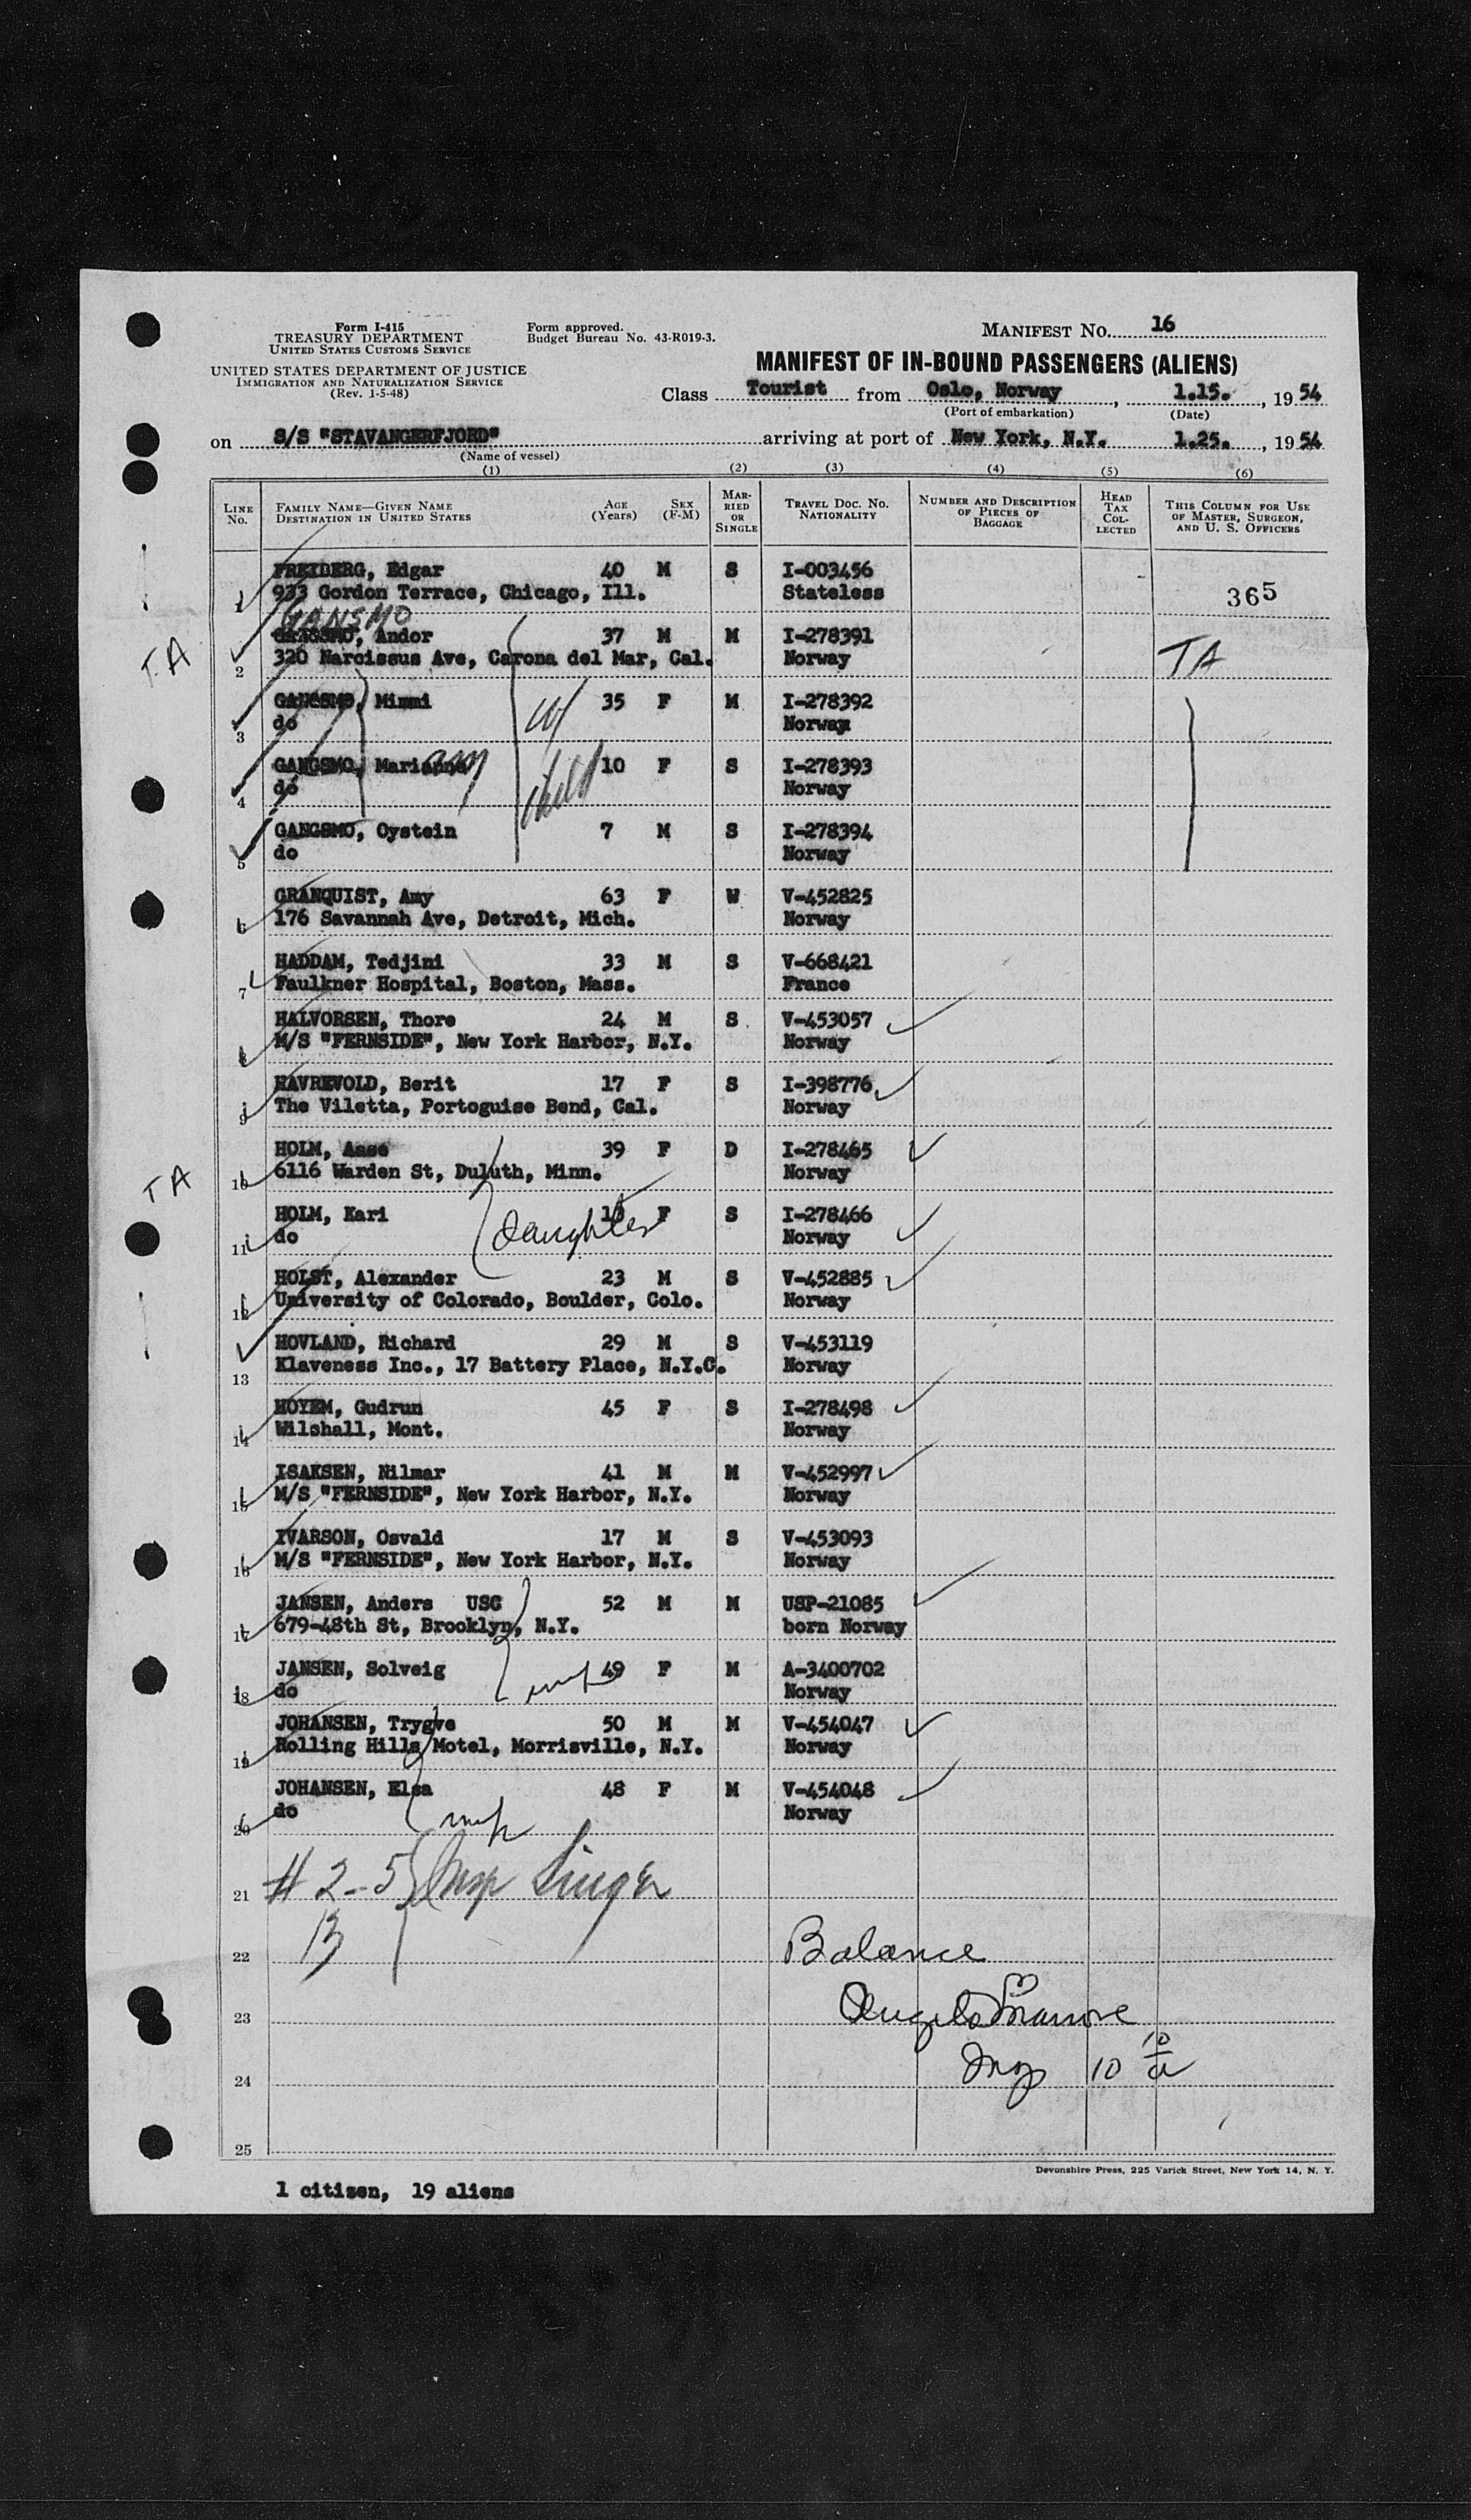 Form I-415
TREASURY DEPARTMENT
UNITED STATES CUSTOMS SERVICE
UNITED STATES DEPARTMENT OF JUSTICE
IMMIGRATION AND NATURALIZATION SERVICE
(Rev. 1-5-48)
Form approved.
Budget Bureau No. 43-R019-3.
MANIFEST No. 16
MANIFEST OF IN-BOUND PASSENGERS (ALIENS)
Class Tourist from Oslo, Norway, 1.15., 1954
(Port of embarkation) (Date)
on S/S "STAVANGERFJORD" arriving at port of New York, N.Y. 1.25., 1954
(Name of vessel)
(1) (2) (3) (4) (5) (6)
LINE No. FAMILY NAME—GIVEN NAME DESTINATION IN UNITED STATES AGE (Years) SEX (F-M) MARRIED OR SINGLE TRAVEL DOC. NO. NATIONALITY NUMBER AND DESCRIPTION OF PIECES OF BAGGAGE HEAD TAX COLLECTED THIS COLUMN FOR USE OF MASTER, SURGEON, AND U. S. OFFICERS
FREIDERG, Edgar 40 M S I-003456
1 933 Gordon Terrace, Chicago, Ill. Stateless 365
GANSMO
GANGSMO, Andor 37 M M I-278391
TA 2 320 Narcissus Ave, Carona del Mar, Cal. Norway TA
GANGSMO, Mimmi 35 F M I-278392
3 do Norway
GANGSMO, Marianne 10 F S I-278393
4 do child Norway
GANGSMO, Oystein 7 M S I-278394
5 do Norway
GRANQUIST, Amy 63 F W V-452825
6 176 Savannah Ave, Detroit, Mich. Norway
HADDAM, Tedjini 33 M S V-668421
7 Faulkner Hospital, Boston, Mass. France
HALVORSEN, Thore 24 M S V-453057
8 M/S "FERNSIDE", New York Harbor, N.Y. Norway
HAVREVOLD, Berit 17 F S I-398776
9 The Viletta, Portoguise Bend, Cal. Norway
HOLM, Aase 39 F D I-278465
TA 10 6116 Warden St, Duluth, Minn. Norway
HOLM, Kari F S I-278466
11 do Daughter Norway
HOLST, Alexander 23 M S V-452885
12 University of Colorado, Boulder, Colo. Norway
HOVLAND, Richard 29 M S V-453119
13 Klaveness Inc., 17 Battery Place, N.Y.C. Norway
HOYEM, Gudrun 45 F S I-278498
14 Wilshall, Mont. Norway
ISAKSEN, Nilmar 41 M M V-452997
15 M/S "FERNSIDE", New York Harbor, N.Y. Norway
IVARSON, Osvald 17 M S V-453093
16 M/S "FERNSIDE", New York Harbor, N.Y. Norway
JANSEN, Anders USC 52 M M USP-21085
17 679-48th St, Brooklyn, N.Y. born Norway
JANSEN, Solveig 49 F M A-3400702
18 do Norway
JOHANSEN, Trygve 50 M M V-454047
19 Rolling Hills Motel, Morrisville, N.Y. Norway
JOHANSEN, Elsa 48 F M V-454048
20 do Norway
21 # 2-5 Insp Singer
22 13 Balance
23
24 Insp 10 10/a
25
Devonshire Press, 225 Varick Street, New York 14, N. Y.
1 citizen, 19 aliens